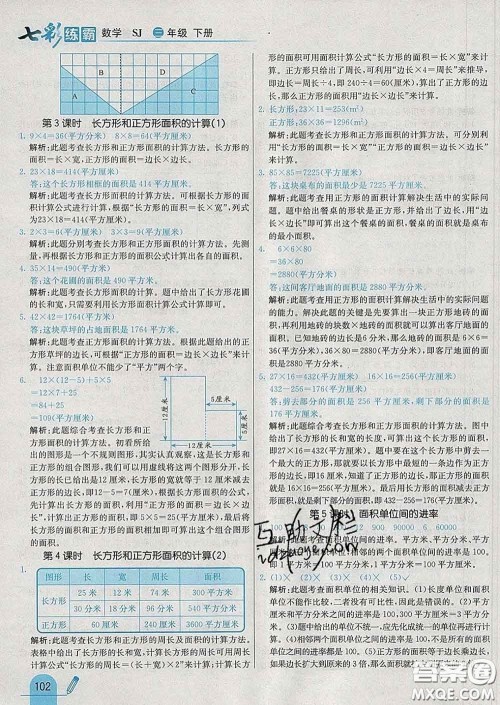 七彩练霸 数学 SJ 三年级 下册
A B C D
第3课时 长方形和正方形面积的计算(1)
1. 9×4=36(平方分米) 8×8=64(平方厘米)
解析:此题考查长方形和正方形面积的计算方法。长方形的
面积=长×宽,正方形的面积=边长×边长。
2. 23×18=414(平方厘米)
答:这个长方形相框的面积是414平方厘米。
解析:此题考查长方形面积的计算方法。可根据长方形的面
积计算公式进行计算,根据“长方形的面积=长×宽”,列式
为23×18=414(平方厘米)。
3. 2×3=6(平方厘米) 3×3=9(平方厘米)
解析:此题分别考查长方形和正方形面积的计算方法。先测
量,再根据长方形和正方形的面积计算公式求出面积。
4. 35×14=490(平方米)
答:这个花圃的面积是490平方米。
解析:此题考查长方形面积的计算。题中给出了长方形花圃
的长和宽,只需要利用长方形面积计算公式计算即可。
5. 42×42=1764(平方米)
答:这块草坪的占地面积是1764平方米。
解析:此题考查正方形面积的计算方法。根据此题给出的正
方形草坪的边长,以及“正方形的面积=边长×边长”来计算。
6. 12×(12-5)+5×5
=12×7+25
=84+25
=109(平方厘米)
12厘米
5厘米
5厘米
12厘米
解析:此题综合考查长方形和正
方形面积的计算方法。初看所给
出的图形是一个不规则图形。其实认真观察,这是长方形
和正方形的组合图形,我们可以用虚线将这两个图形分开,长
方形的长已给出是12厘米,长方形的宽就等于12厘米减去
正方形的边长,即12-5=7(厘米),根据“长方形的面积=
长×宽”“正方形的面积=边长×边长”,分别求出两个图形
的面积,再相加就是这个组合图形的面积。
第4课时 长方形和正方形面积的计算(2)
1.
图形 长 宽 周长 面积
长方形 25米 12米 74米 300平方米
30分米 18分米 96分米 540平方分米
正方形 60厘米 240厘米 3600平方厘米
解析:此题考查长方形和正方形的周长及面积的计算方法。
表格中给出了长方形的长和宽,要求长方形的周长,可根据计
算公式“长方形的周长=(长+宽)×2”来计算;计算长方
102
形的面积可根据面积计算公式“长方形的面积=长×宽”来计
算。正方形只给出了周长,可利用“边长×4=周长”来推导,
即边长=周长÷4,即240÷4=60(厘米)。正方形的面积
可根据“正方形的面积=边长×边长”来计算。
2. 长方形,23×11=253(m²)
正方形,36×36=1296(m²)
解析:此题考查长方形和正方形面积的计算方法。可分别利
用“长方形的面积=长×宽”“正方形的面积=边长×边长”
来计算。
3. 85×85=7225(平方厘米)
答:这块桌布的面积至少是7225平方厘米。
解析:此题考查用正方形的面积计算解决生活中的实际问
题。题中给出餐桌的形状是正方形,并给出了边长,用“边
长×边长”即可算出这个餐桌的面积,也就是这块餐桌桌布
的最小面积。
4. 6×6×80
=36×80
=2880(平方分米)
答:这个客厅地面的面积是2880平方分米。
解析:此题考查用正方形的面积计算解决生活中的实际问题
的能力。解决此题的关键是先要算出一块地砖的面积,再利
用一块地砖的面积×地砖的数量,就可以算出客厅地面的面
积。一块地砖的面积为6×6=36(平方分米),那么80块地
砖的面积=36×80=2880(平方分米),即客厅地面的面积。
5. 27×16=432(平方厘米) 16×16=256(平方厘米)
432-256=176(平方厘米)
答:剪去部分的面积是256平方厘米,剩下部分的面积是
176平方厘米。
解析:此题综合考查长方形和正方形面积的计算方法。图中
给出了长方形的长和宽的长度,可以求出长方形的面积,
即27×16=432(平方厘米)。如果从这个长方形中剪去一个
最大的正方形,那么正方形的边长应该等于长方形的宽,剪去
部分的面积,也就是这个正方形的面积,即16×16=256(平
方厘米),最后用长方形的面积减去剪去部分正方形的面积,
就是剩下部分的面积,即432-256=176(平方厘米)。
第5课时 面积单位间的进率
互助文档
MXQE.COM